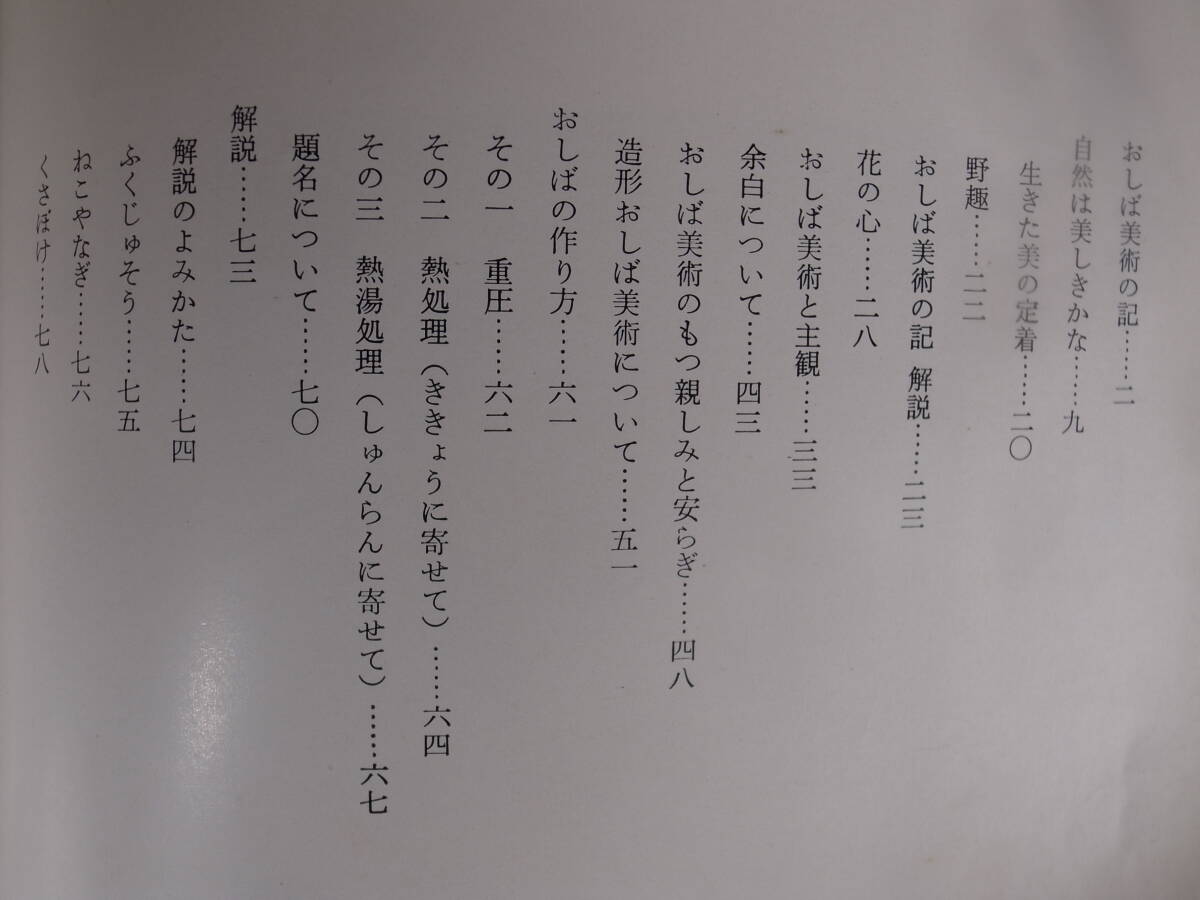 おしば美術の記……二
自然は美しきかな……九
生きた美の定着……二〇
野趣……二二
おしば美術の記 解説……二三
花の心……二八
おしば美術と主観……三三
余白について……四三
おしば美術のもつ親しみと安らぎ……四八
造形おしば美術について……五一
おしばの作り方……六一
その一 重圧……六二
その二 熱処理（ききょうに寄せて）……六四
その三 熱湯処理（しゅんらんに寄せて）……六七
題名について……七〇
解説……七三
解説のよみかた……七四
ふくじゅそう……七五
ねこやなぎ……七六
くさぼけ……七八